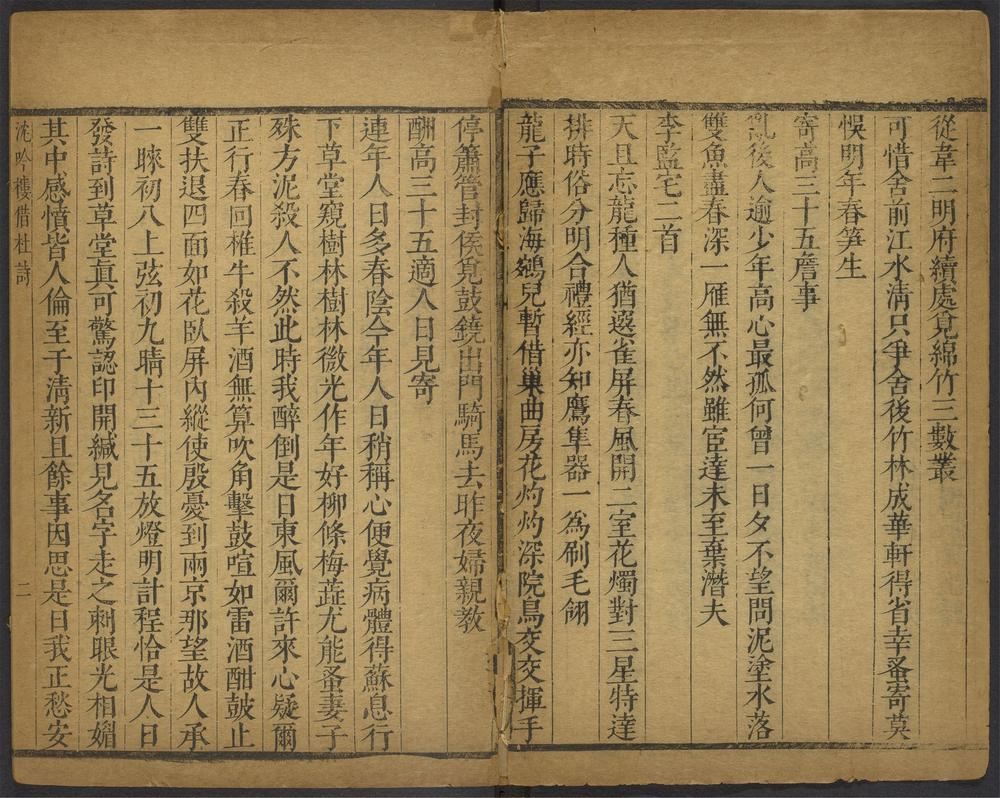 從韋二明府續處覓綿竹三數叢
可惜舍前江水清只爭舍後竹林成華軒得省幸蚤寄莫
悞明年春笋生
寄高三十五詹事
亂後人逾少年高心最孤何曾一日夕不望問泥塗水落
雙魚盡春深一雁無不然雖宦達未至棄潛夫
李監宅二首
天且忘龍種人猶選雀屏春風開二室花燭對三星特達
排時俗分明合禮經亦知鷹隼器一爲刷毛翎
龍子應歸海鵷兒暫借巢曲房花灼灼深院鳥交交揮手
停簫管封侯覓鼓鐃出門騎馬去昨夜婦親教
酬高三十五適人日見寄
連年人日多春陰今年人日稍稱心便覺病體得蘇息行
下草堂窺樹林樹林微光作年好柳條梅蕋尤能蚤妻子
殊方泥殺人不然此時我醉倒是日東風爾許來心疑爾
正行春回椎牛殺羊酒無算吹角擊鼓喧如雷酒酣皷止
雙扶退四面如花臥屏內縱使殷憂到兩京那望故人承
一睞初八上弦初九晴十三十五放燈明計程恰是人日
發詩到草堂眞可驚認印開緘見名字走之刺眼光相媚
其中感憤皆人倫至于清新且餘事因思是日我正愁安
沈吟樓借杜詩
二